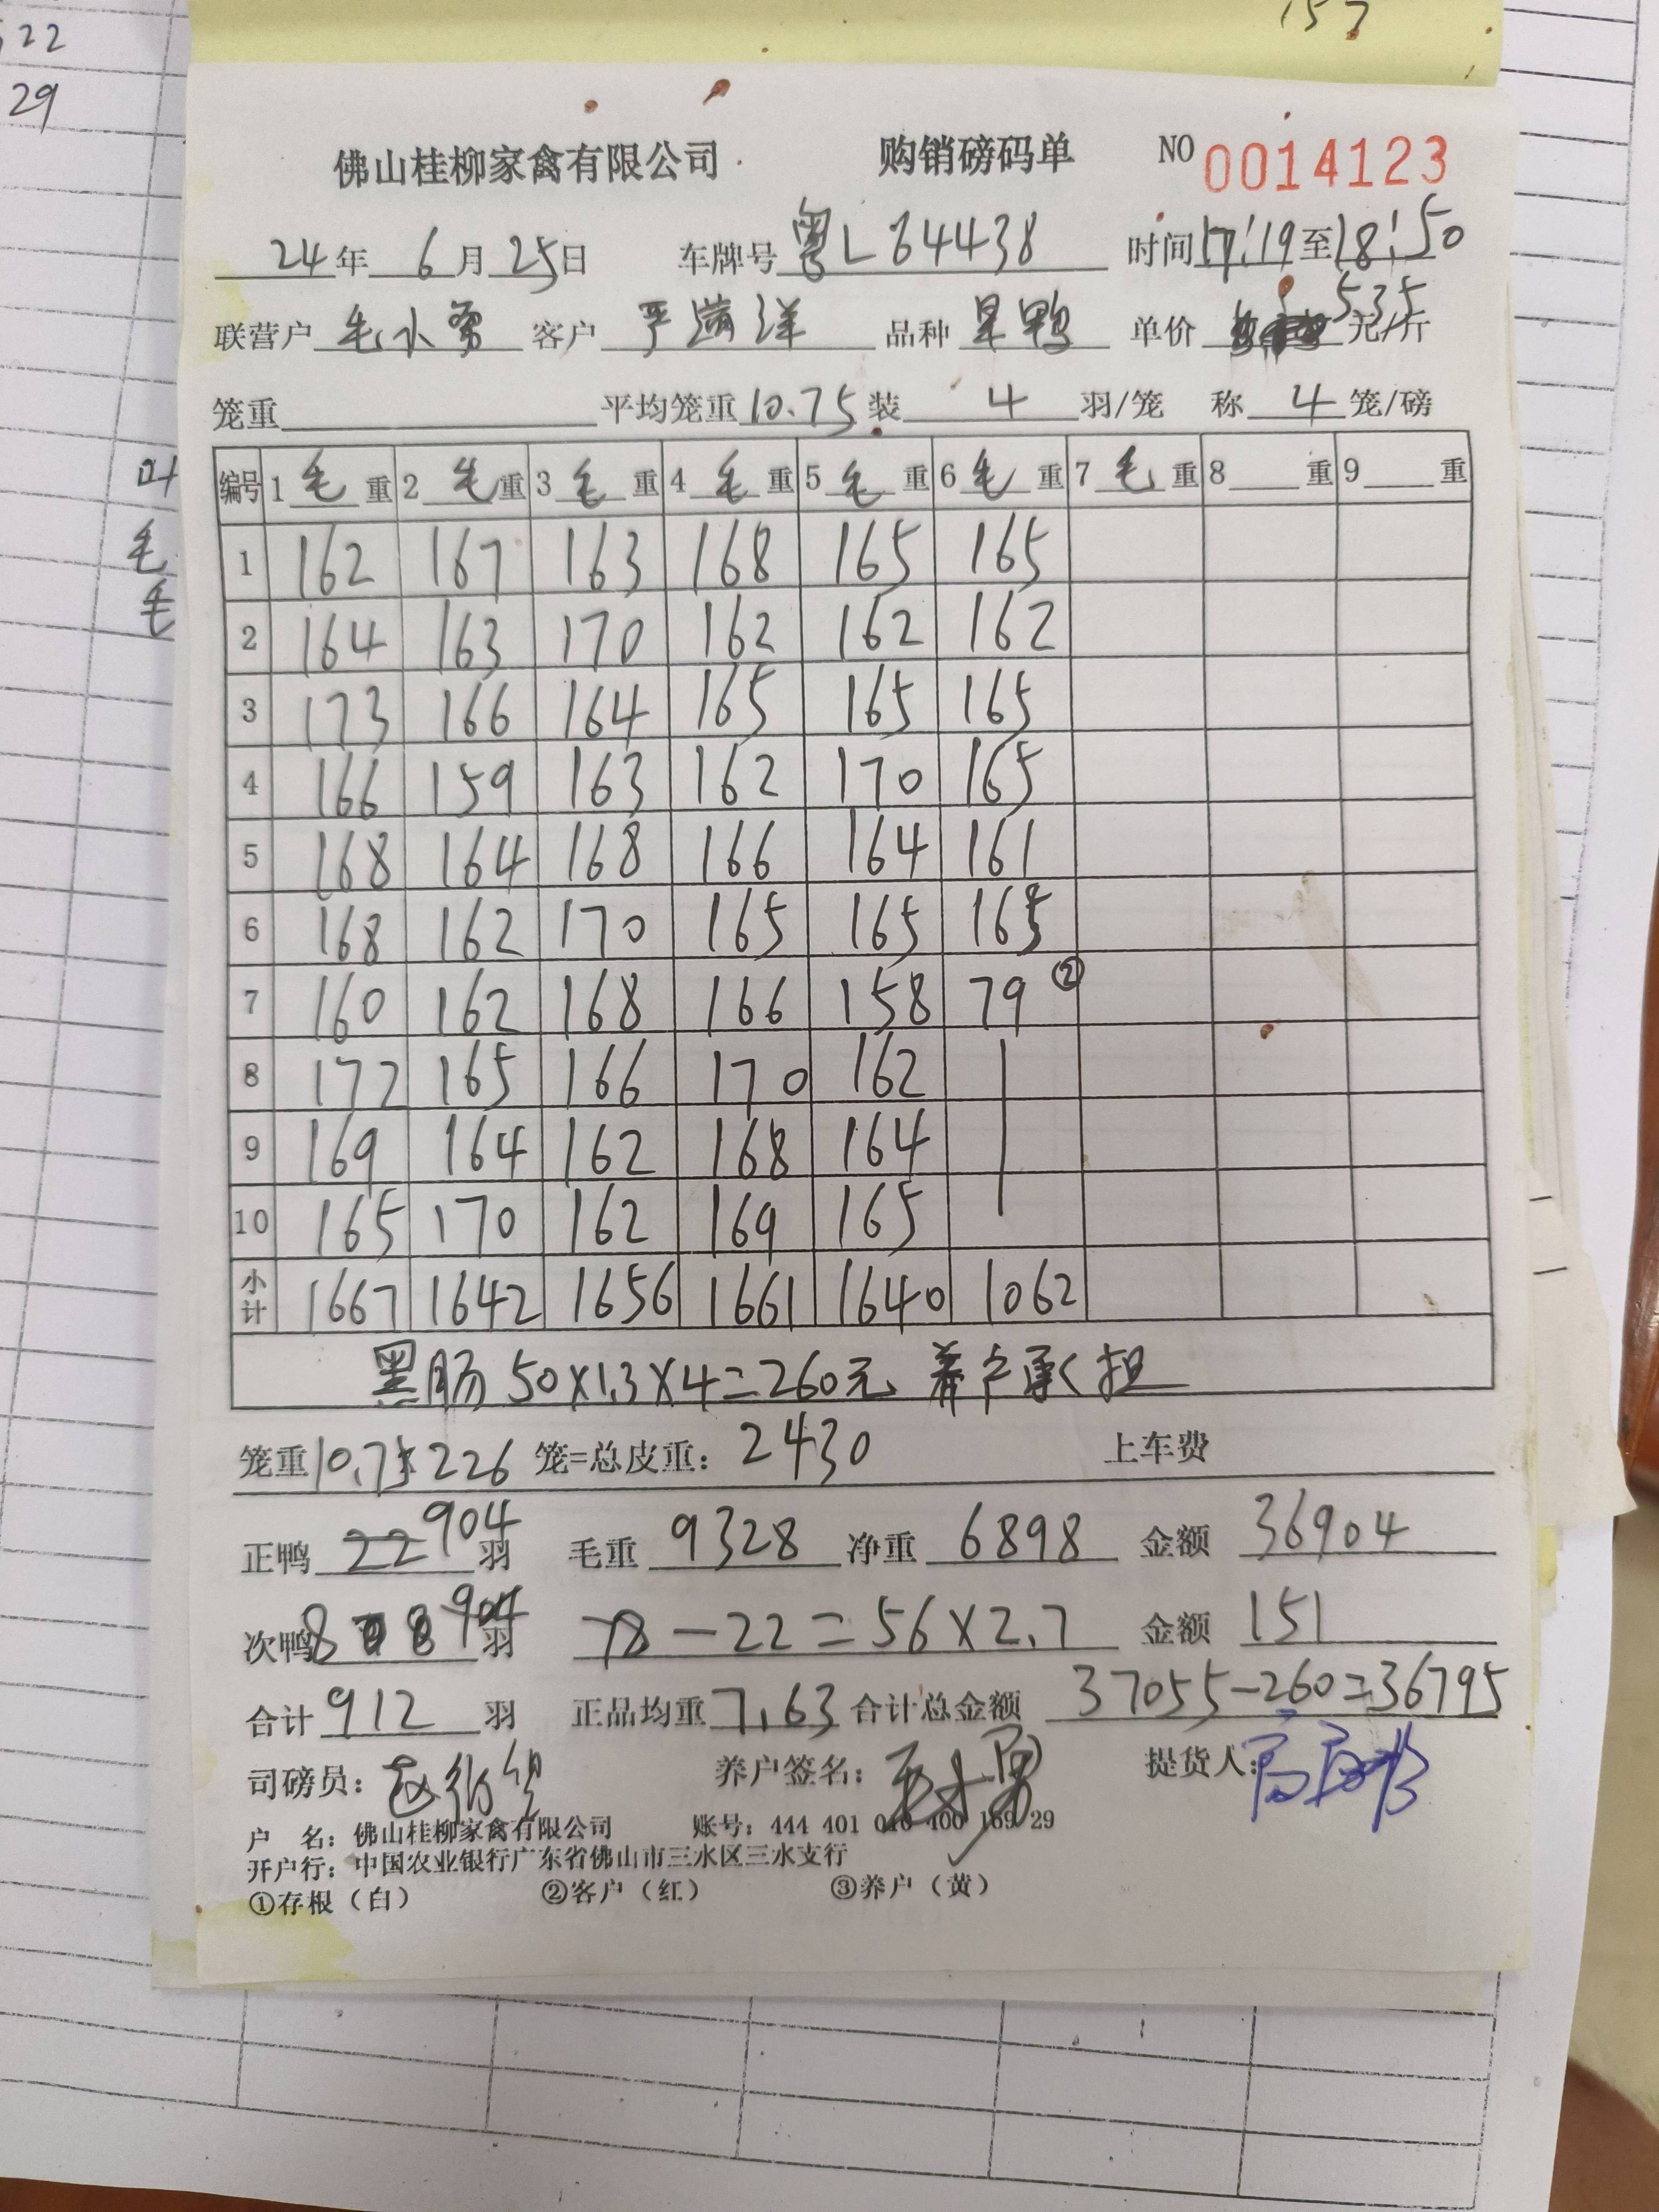 157
22
29
佛山桂柳家禽有限公司 购销磅码单 NO 0014123
24年6月25日 车牌号 粤L64438 时间17:19至18:50
联营户 毛小勇 客户 严满洋 品种 旱鸭 单价 5.35 元/斤
笼重 平均笼重10.75装 4 羽/笼 称 4 笼/磅
编号 1毛重 2毛重 3毛重 4毛重 5毛重 6毛重 7毛重 8 重 9 重
1 162 167 163 168 165 165
2 164 163 170 162 162 162
3 173 166 164 165 165 165
4 166 159 163 162 170 165
5 168 164 168 166 164 161
6 168 162 170 165 165 165
7 160 162 168 166 158 79 ②
8 172 165 166 170 162
9 169 164 162 168 164
10 165 170 162 169 165
小计 1667 1642 1656 1661 1640 1062
黑肠 50×1.3×4=260元 养户承担
笼重10.75×226 笼=总皮重：2430 上车费
正鸭 904 羽 毛重 9328 净重 6898 金额 36904
次鸭 8 羽 78-22=56×2.7 金额 151
合计 912 羽 正品均重 7.63 合计总金额 37055-260=36795
司磅员： 养户签名： 提货人：
户 名：佛山桂柳家禽有限公司 账号：444 401 010 400 169 29
开户行：中国农业银行广东省佛山市三水区三水支行
①存根（白） ②客户（红） ③养户（黄）